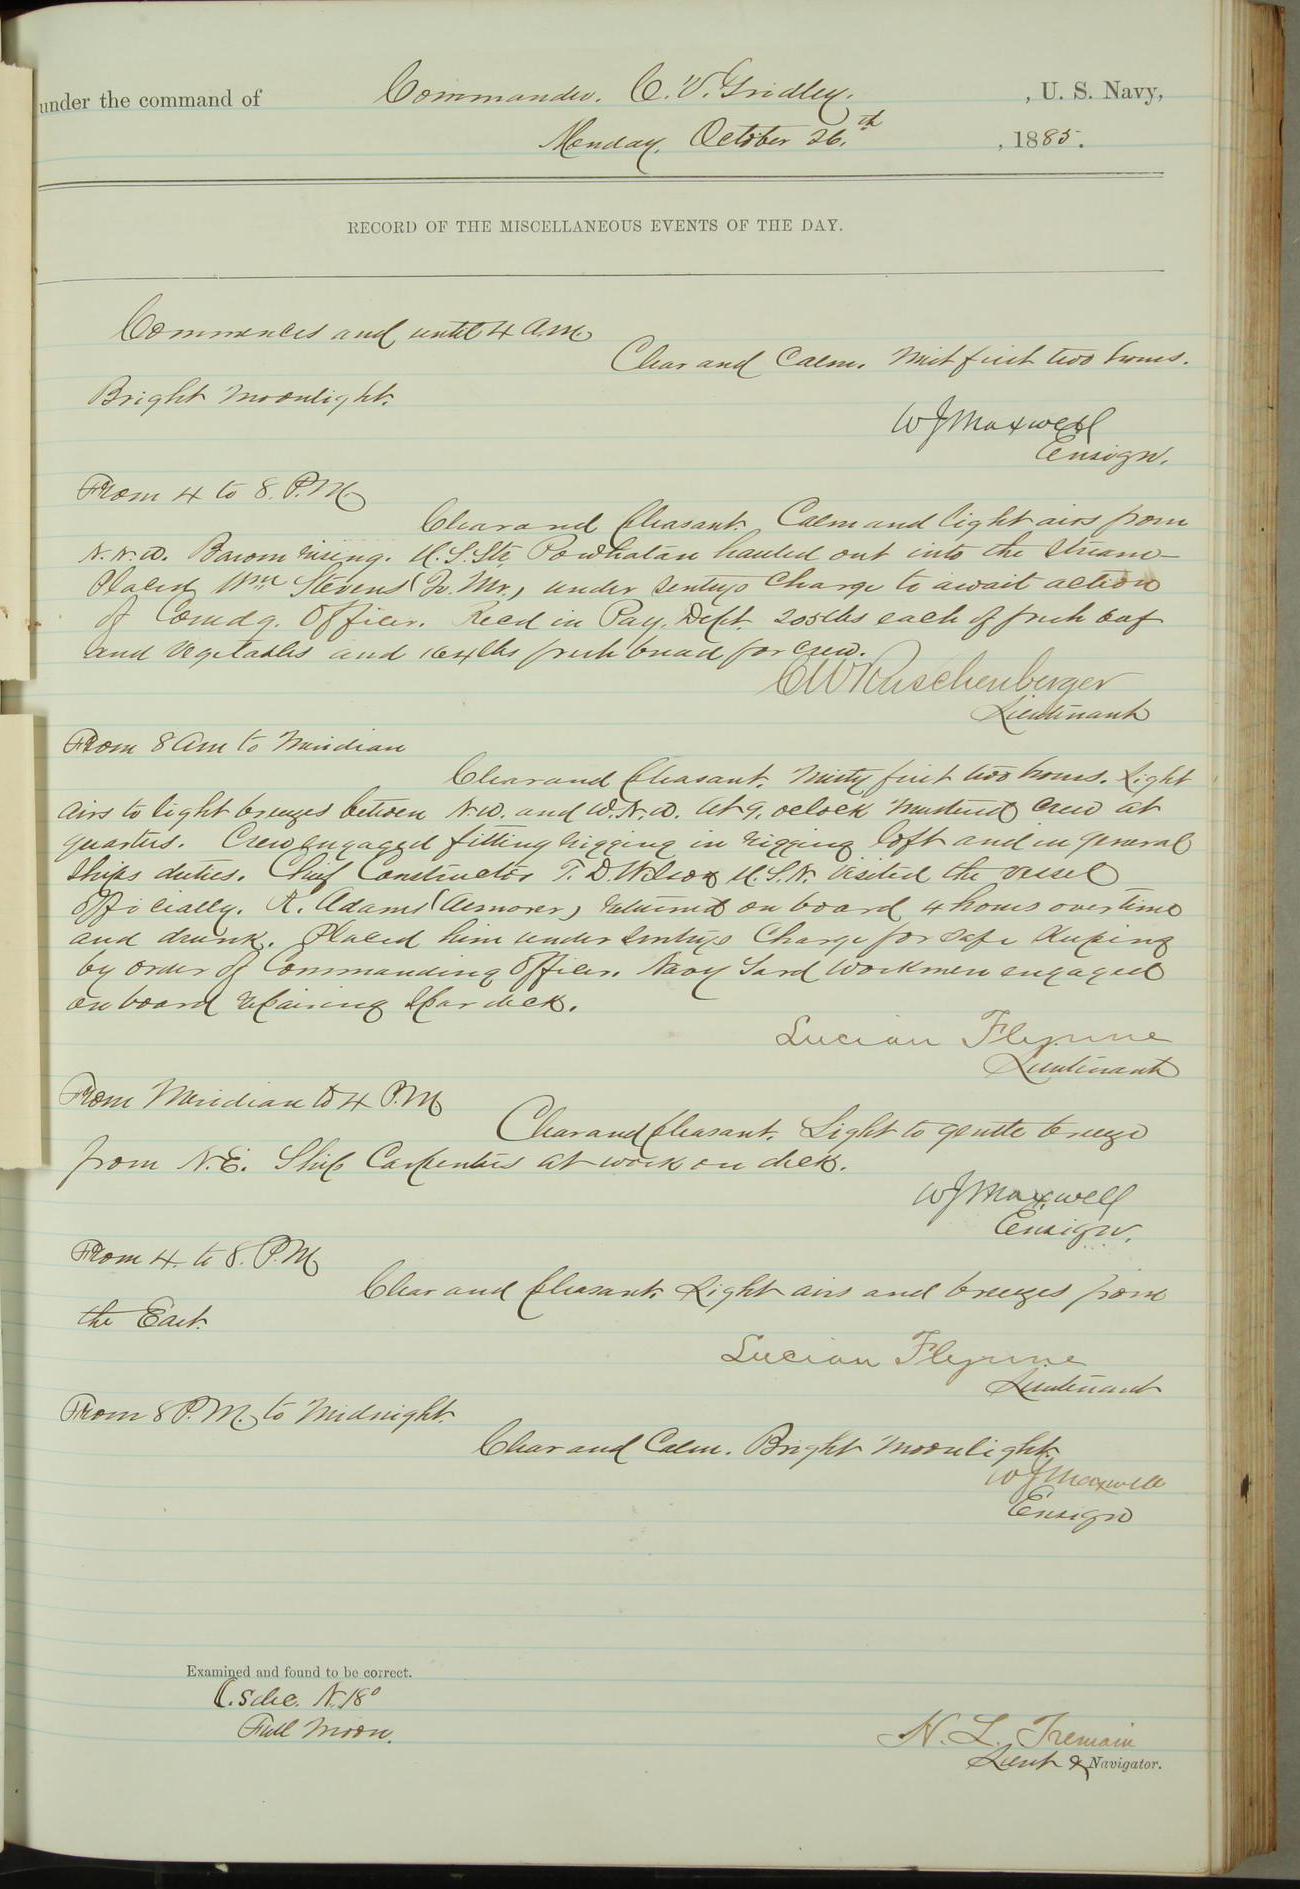 under the command of Commander. C. V. Gridley. , U. S. Navy,
Monday, October 26.th , 1885.
RECORD OF THE MISCELLANEOUS EVENTS OF THE DAY.
Commences and until 4 A.M.
Clear and Calm. Mist first two hours.
Bright Moonlight.
W J Maxwell
Ensign.
From 4 to 8. P.M.
Clear and Pleasant. Calm and light airs from
N.N.W. Barom rising. U.S. Str. Powhatan hauled out into the stream-
Placed Wm Stevens under sentrys Charge to await action
of Comdg. Officer. Recd in Pay. Dept. 205 lbs each of fresh beef
and vegetables and 164 lbs fresh bread for crew.
C W Ruschenberger
Lieutenant
From 8 am to Meridian
Clear and Pleasant. Misty first two hours. Light
airs to light breezes between N.W. and W.N.W. At 9. oclock mustered crew at
quarters. Crew engaged fitting rigging in rigging loft and in general
Ships duties. Chief Constructor T. D. Wilson U.S.N. visited the vessel
Officially. R. Adams (Armorer) returned on board 4 hours overtime
and drunk. Placed him under sentrys Charge for safe keeping
by order of Commanding Officer. Navy Yard workmen engaged
on board repairing Spar deck.
Lucian Flynne
Lieutenant
From Meridian to 4 P.M.
Clear and pleasant. Light to gentle breeze
from N.E. Ship Carpenters at work on deck.
W J Maxwell
Ensign.
From 4. to 8. P.M.
Clear and Pleasant. Light airs and breezes from
the East.
Lucian Flynne
Lieutenant
From 8 P.M. to Midnight.
Clear and Calm. Bright Moonlight.
W J Maxwell
Ensign
Examined and found to be correct.
☾.s dec. N. 18°
Full Moon.
N. L. Tremain
Lieut & Navigator.